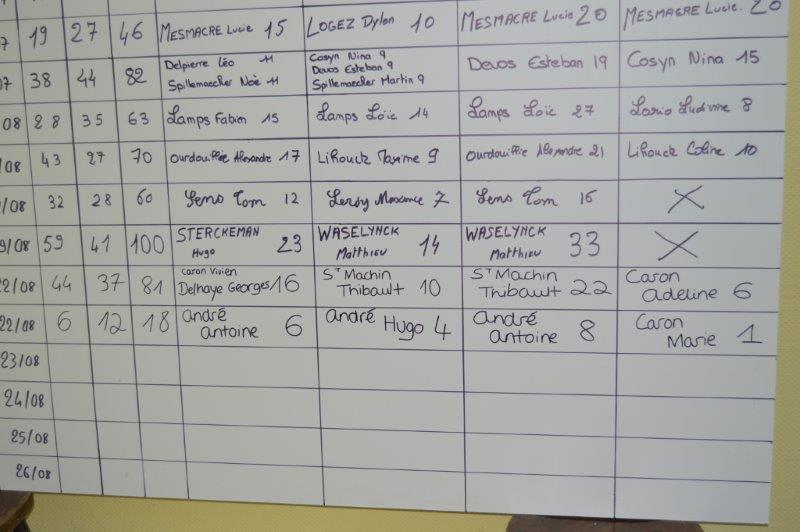 7 19 27 46 MESMACRE Lucie 15 LOGEZ Dylan 10 MESMACRE Lucie 20 MESMACRE Lucie. 20
07 38 44 82 Delpierre Léo 11 Cosyn Nina 9 Devos Esteban 19 Cosyn Nina 15
Spillemaecker Noé 11 Devos Esteban 9
Spillemaecker Martin 9
08 28 35 63 Lamps Fabien 15 Lamps Loïc 14 Lamps Loïc 27 Lario Ludivine 8
/08 43 27 70 Ourdouillie Alexandre 17 Lihouck Maxime 9 Ourdouillie Alexandre 21 Lihouck Coline 10
/08 32 28 60 Sens Tom 12 Leroy Maxance 7 Sens Tom 16 X
9/08 59 41 100 STERCKEMAN Hugo 23 WASELYNCK Matthieu 14 WASELYNCK Matthieu 33 X
22/08 44 37 81 Caron Vivien St Machin Thibault 10 St Machin Thibault 22 Caron Adeline 6
Delhaye Georges 16
22/08 6 12 18 André Antoine 6 André Hugo 4 André Antoine 8 Caron Marie 1
23/08
24/08
25/08
26/08